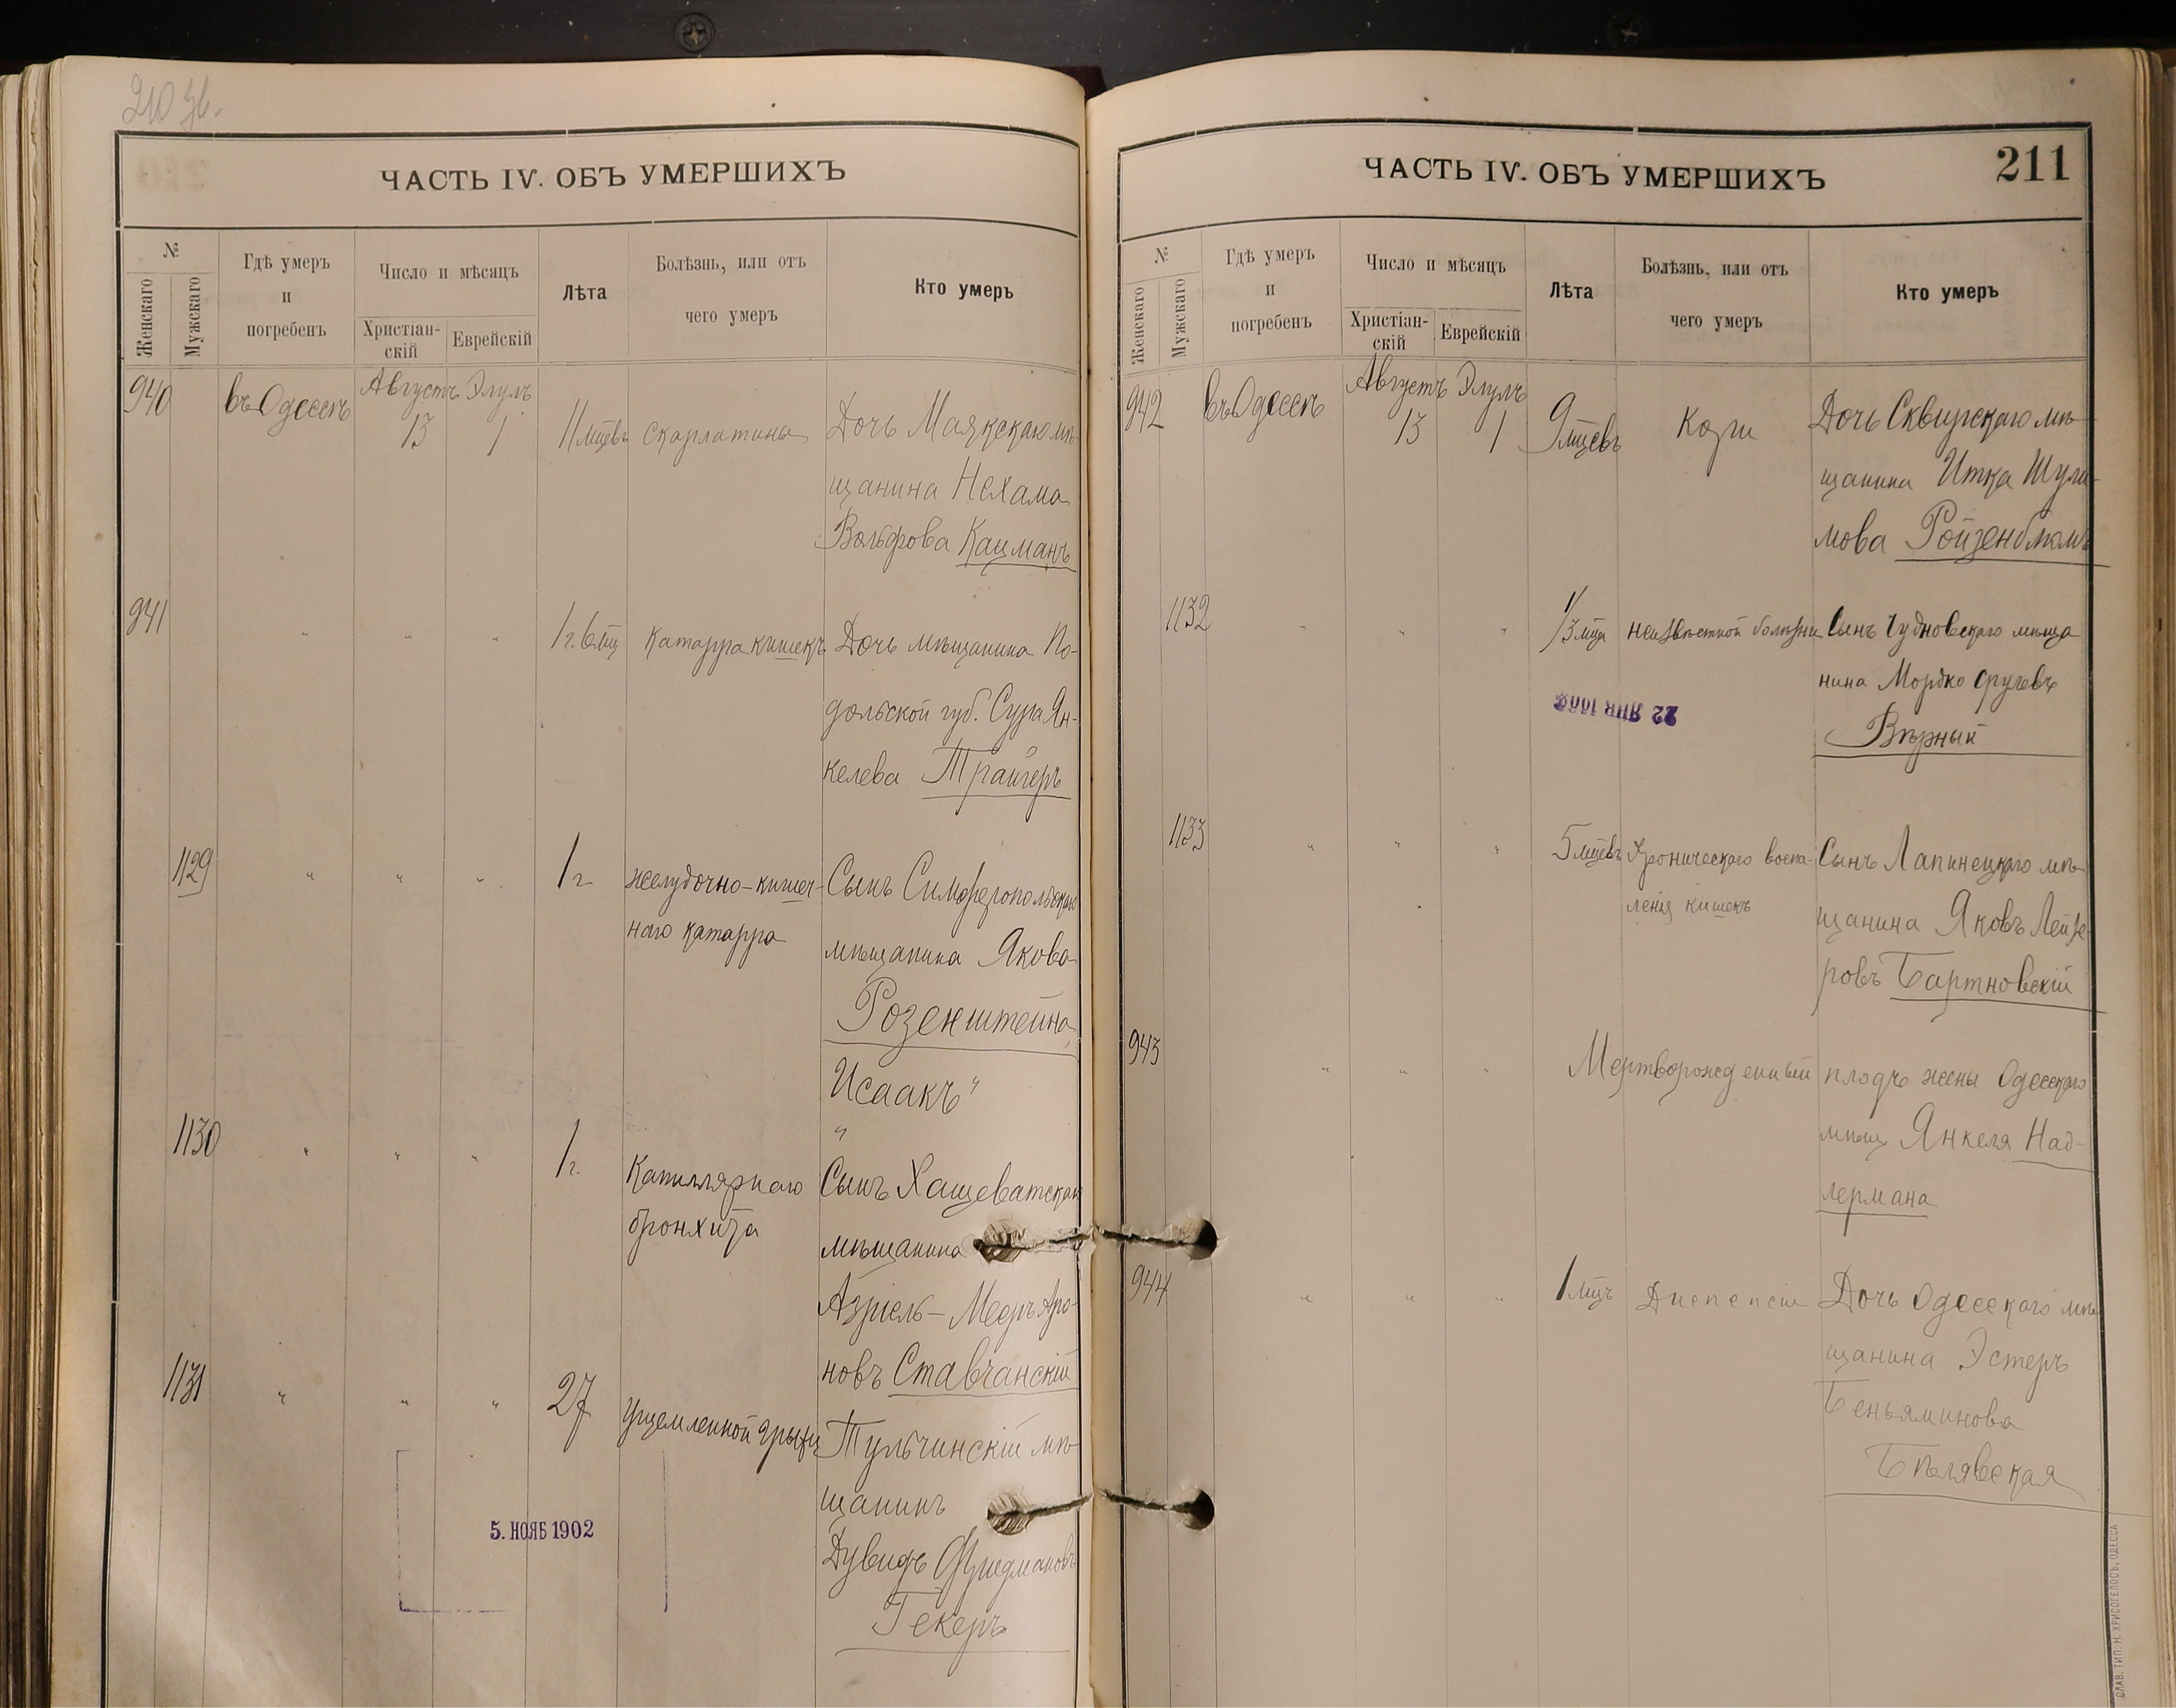 210 об.
ЧАСТЬ IV. ОБЪ УМЕРШИХЪ
№
Женскаго
Мужскаго
Гдѣ умеръ
и
погребенъ
Число и мѣсяцъ
Христіан-
скій
Еврейскій
Лѣта
Болѣзнь, или отъ
чего умеръ
Кто умеръ
940 въ Одессѣ Августъ 13 Элулъ 1 11 мцевъ скарлатина Дочь Маякскаго мѣ-
щанина Нехама
Вольфова Кацманъ
941 " " " 1 г. 6 мц Катарра кишекъ Дочь мѣщанина По-
дольской губ. Сура Ян-
келева Трайгеръ
1129 " " " 1 г желудочно-кишеч- Сынъ Симферопольскаго
наго катарра мѣщанина Якова
Розенштейна
Исаакъ"
"
1130 " " " 1 г. Капиллярнаго Сынъ Хащеватскаго
бронхита мѣщанина
Азріель-Мееръ Аро-
новъ Ставчанскій
1131 " " " 27 Ущемленной грыжи Тульчинскій мѣ-
щанинъ
Дувидъ Фридмановъ
Гекеръ
5. НОЯБ 1902
ЧАСТЬ IV. ОБЪ УМЕРШИХЪ
211
№
Женскаго
Мужскаго
Гдѣ умеръ
и
погребенъ
Число и мѣсяцъ
Христіан-
скій
Еврейскій
Лѣта
Болѣзнь, или отъ
чего умеръ
Кто умеръ
942 въ Одессѣ Августъ 13 Элулъ 1 9 мцевъ Кори Дочь Сквирскаго мѣ-
щанина Итка Шули-
мова Ройзенблюмъ
1132 " " " 1/3 мца неизвѣстной болѣзни Сынъ Чудновскаго мѣща
нина Мордко Сруlевъ
Вѣрный
22 ЯНВ
1133 " " " 5 мцевъ Хроническаго воспа- Сынъ Лапинецкаго мѣ-
ленія кишекъ щанина Яковъ Лейзе-
ровъ Бартновскій
943 " " " Мертворожденный плодъ жены Одесскаго
мѣщ Янкеля Над-
лермана
944 " " " 1 мцъ Диспепсіи Дочь Одесскаго мѣ
щанина Эстеръ
Беньяминова
Бѣлявская
СЛАВ. ТИП. Н. ХРИСОГЕЛОСЪ, ОДЕССА